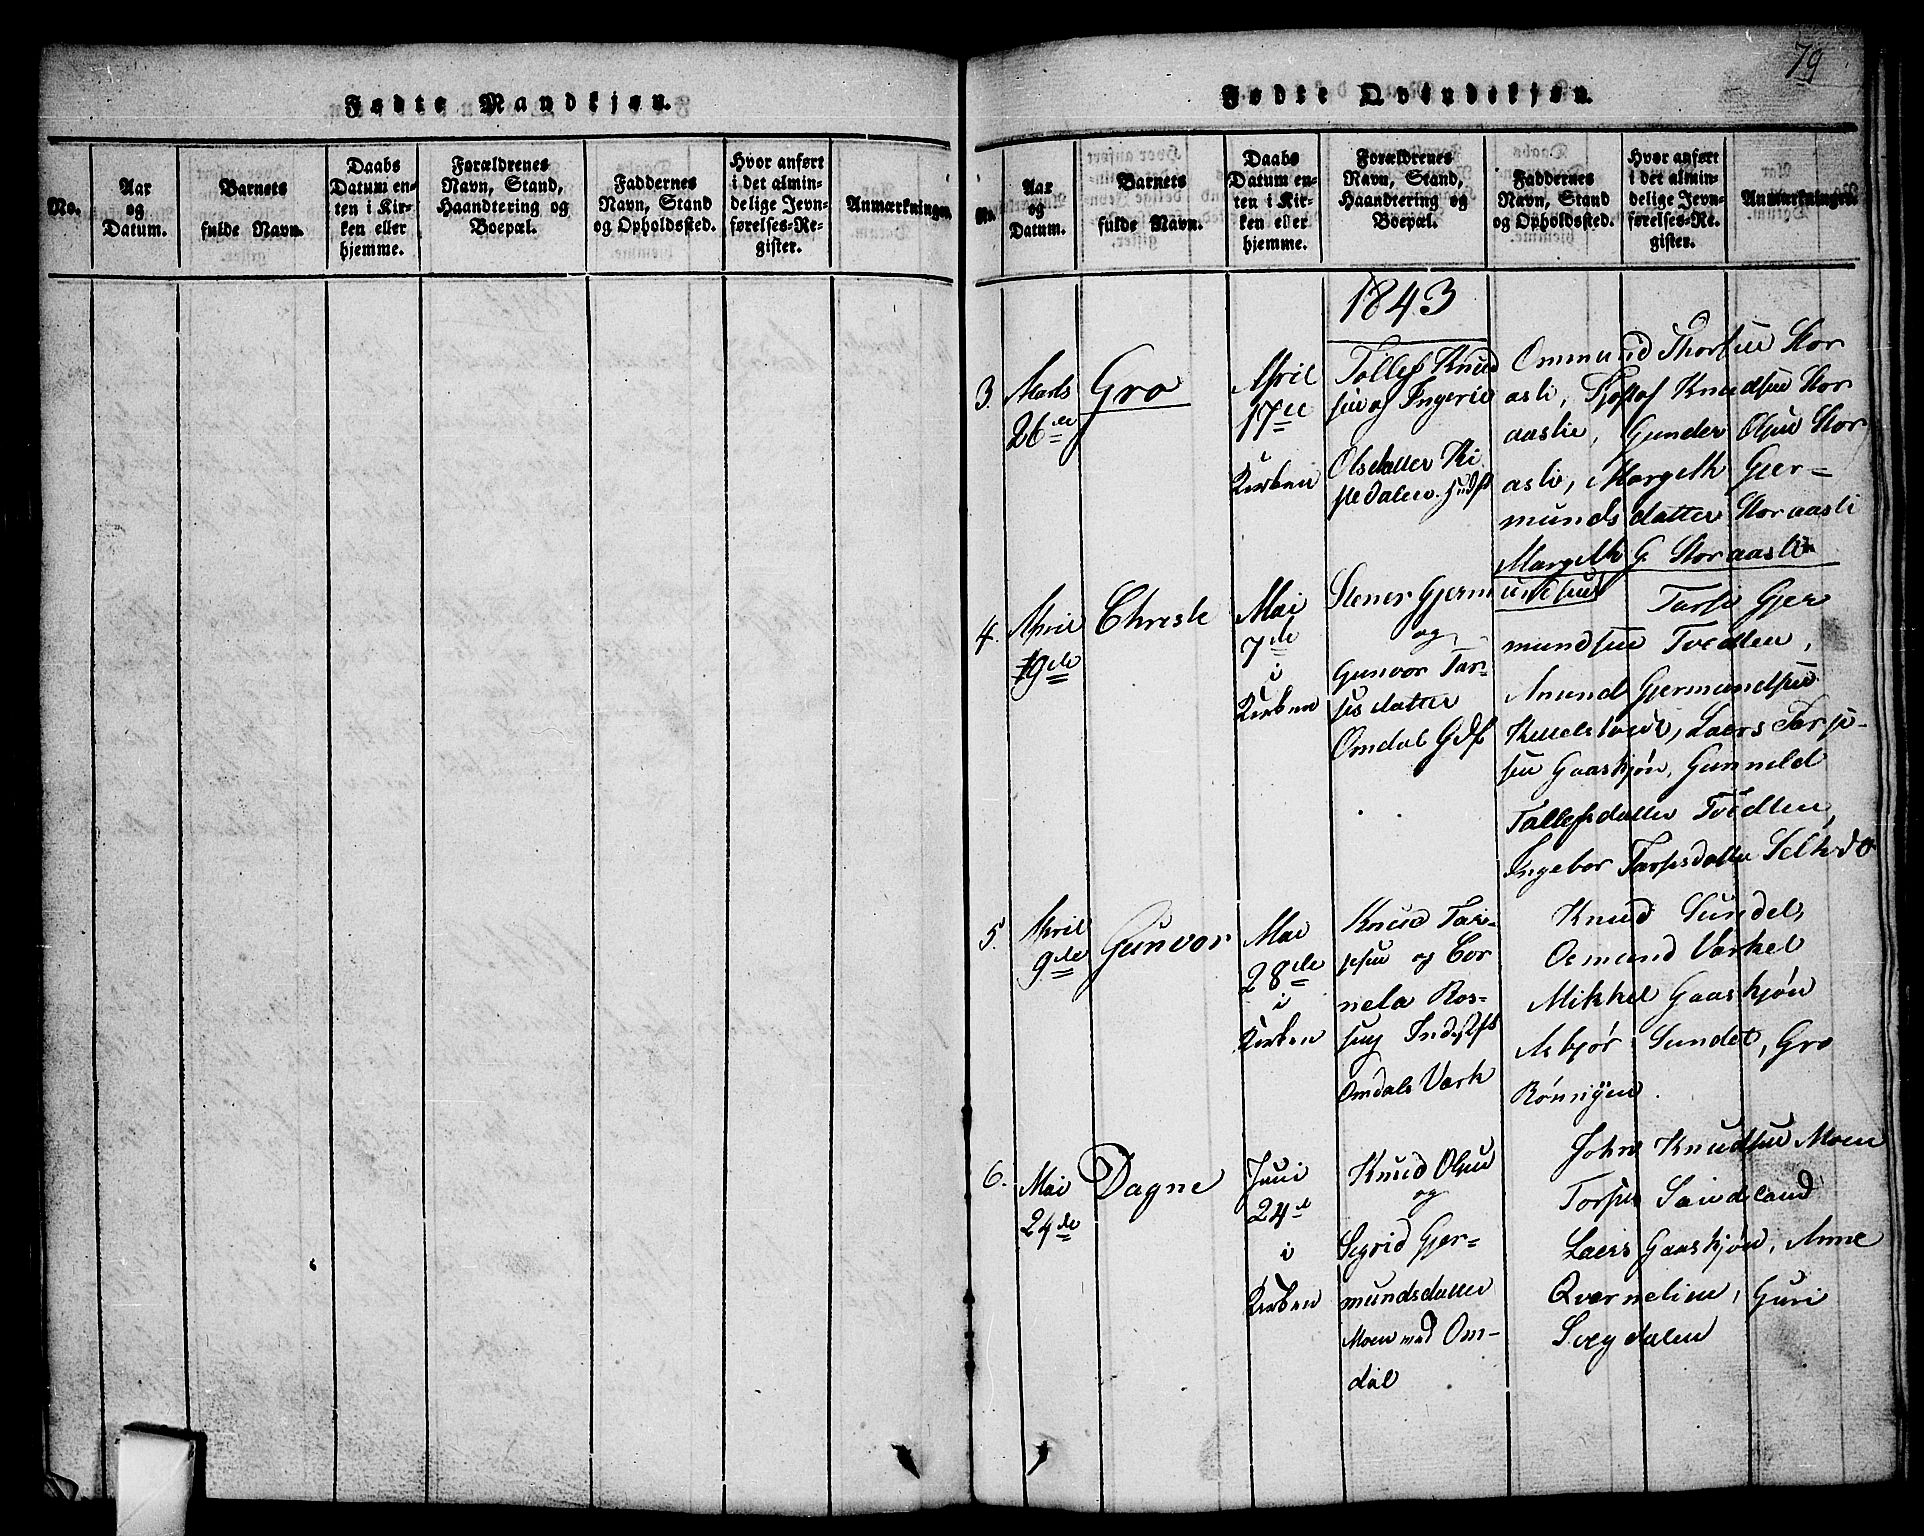 79
Fødte Mandkjøn.
No.
Aar
og
Datum.
Barnets
fulde Navn.
Daabs
Datum en-
ten i Kir-
ken eller
hjemme.
Forældrenes
Navn, Stand,
Haandtering og
Boepæl.
Faddernes
Navn, Stand
og Opholdssted.
Hvor anført
i det almin-
delige Jevn-
førelses-Re-
gister.
Anmærkninger.
Fødte Qvindekjøn.
No.
Aar
og
Datum.
Barnets
fulde Navn.
Daabs
Datum en-
ten i Kir-
ken eller
hjemme.
Forældrenes
Navn, Stand,
Haandtering og
Boepæl.
Faddernes
Navn, Stand
og Opholdssted.
Hvor anført
i det almin-
delige Jevn-
førelses-Re-
gister.
Anmærkninger.
1843
3.
Marts
26de
Gro
April
17de
i
Kirken
Tollef Knud
sen og Ingerid
Olsdatter
Ommund
Knudsen Stor
aaslie, Gunder Olsen Stor
asli, Margeth Gjer=
munds datter Storaasli
Margeth G. Storaasli
4.
April
19de
Christe
Mai
7de
i
Kirken
Stener Gjerm
undsen
og
Gunvor Tar=
jesdatter
Omdal
Tarje Gjer
mundsen Tvedten,
Anund Gjermundsen
Laers Tarje-
sen Gaaskjøn, Gunneld
Tollefsdatter Tvedten,
Ingebor Tarjesdatter
5.
April
9de
Gunvor
Mai
28de
i
Kirken
Knud Tar-
jesen og Cor
nela Ros=
Omdals Værk
Knud Sundet,
Osmund
Mikkel Gaaskjøn
Asbjør Sundet, Gro
Rønnigen
6.
Mai
24de
Dagne
Juni
24d
i
Kirken
Knud Olsen
og
Sigrid Gjer=
mundsdatter
Moen ved Om=
dal
John Knudsen Moen
Laers Gaaskjøn, Anne
Qvernelien, Guri